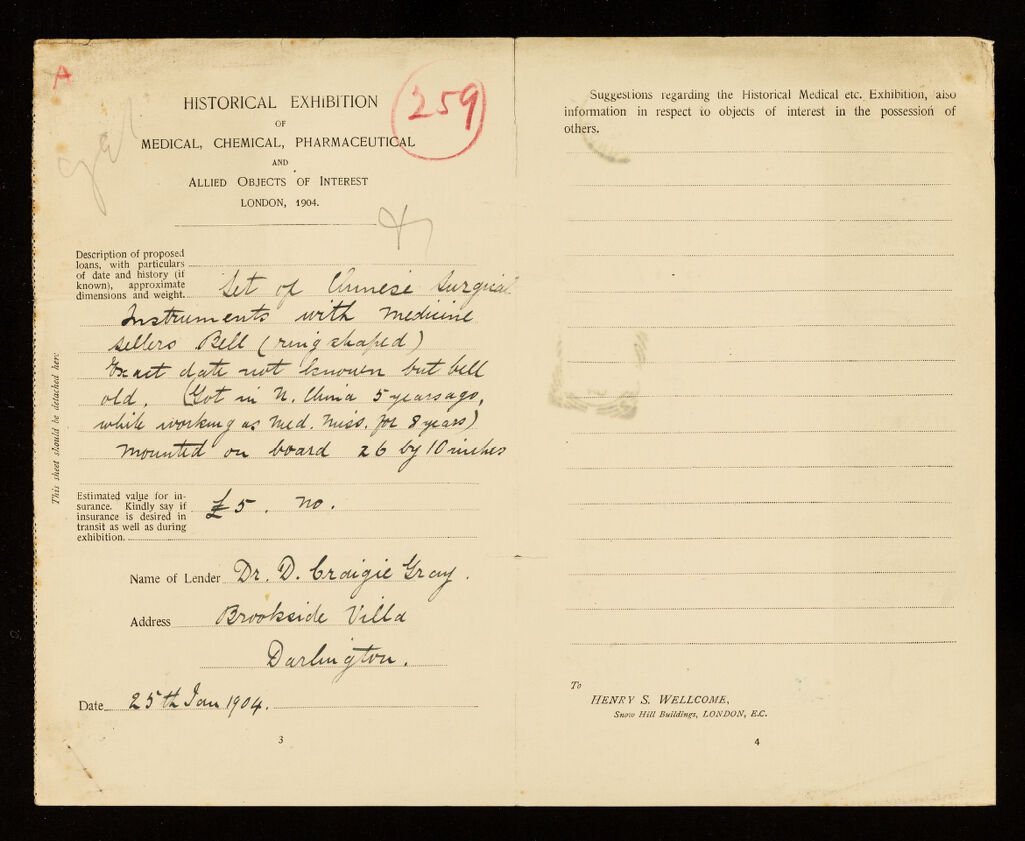 A
259
HISTORICAL EXHIBITION
OF
MEDICAL, CHEMICAL, PHARMACEUTICAL
AND
ALLIED OBJECTS OF INTEREST
LONDON, 1904.
Description of proposed
loans, with particulars
of date and history (if
known), approximate
dimensions and weight.
Set of Chinese Surgical
Instruments with medicine
sellers Bell (ring shaped)
Exact date not known but bell
old. (Got in N. China 5 years ago,
while working as Med. Miss. for 8 years)
Mounted on board 26 by 10 inches
This sheet should be detached here
Estimated value for in-
surance. Kindly say if
insurance is desired in
transit as well as during
exhibition.
£5. no.
Name of Lender Dr. D. Craigie Gray.
Address Brookside Villa
Darlington.
Date 25th Jan 1904.
3
Suggestions regarding the Historical Medical etc. Exhibition, also
information in respect to objects of interest in the possession of
others.
To
HENRY S. WELLCOME,
Snow Hill Buildings, LONDON, E.C.
4